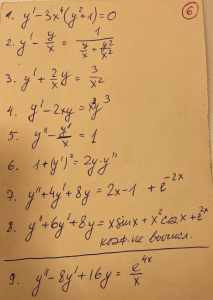 6
1. y' - 3x⁴(y²+1) = 0
2. y' - y/x = 1/(y/x + y²/x²)
3. y' + 2/x y = 3/x²
4. y' - 2xy = x³y³
5. y'' - y'/x = 1
6. 1 + (y')² = 2y·y''
7. y'' + 4y' + 8y = 2x - 1 + e⁻²ˣ
8. y'' + 6y' + 8y = x sin x + x² cos x + e²ˣ
коэф. не вычисл.
9. y'' - 8y' + 16y = e⁴ˣ/x